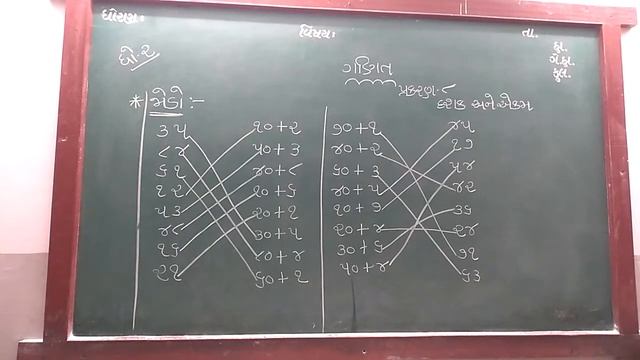 ધોરણઃ વિષયઃ તા.
હા.
ગે.હા.
કુલ.
ધો.૨ ગણિત
પ્રકરણ-૮
દશક અને એકમ
* જોડો :-
૩૫ ૧૦+૨
૮૪ ૫૦+૩
૬૧ ૪૦+૮
૧૨ ૧૦+૬
૫૩ ૨૦+૧
૪૮ ૩૦+૫
૧૬ ૮૦+૪
૨૧ ૬૦+૧
૭૦+૧ ૪૫
૪૦+૨ ૧૭
૬૦+૩ ૫૪
૪૦+૫ ૪૨
૧૦+૭ ૩૬
૨૦+૪ ૨૪
૩૦+૬ ૭૧
૫૦+૪ ૬૩